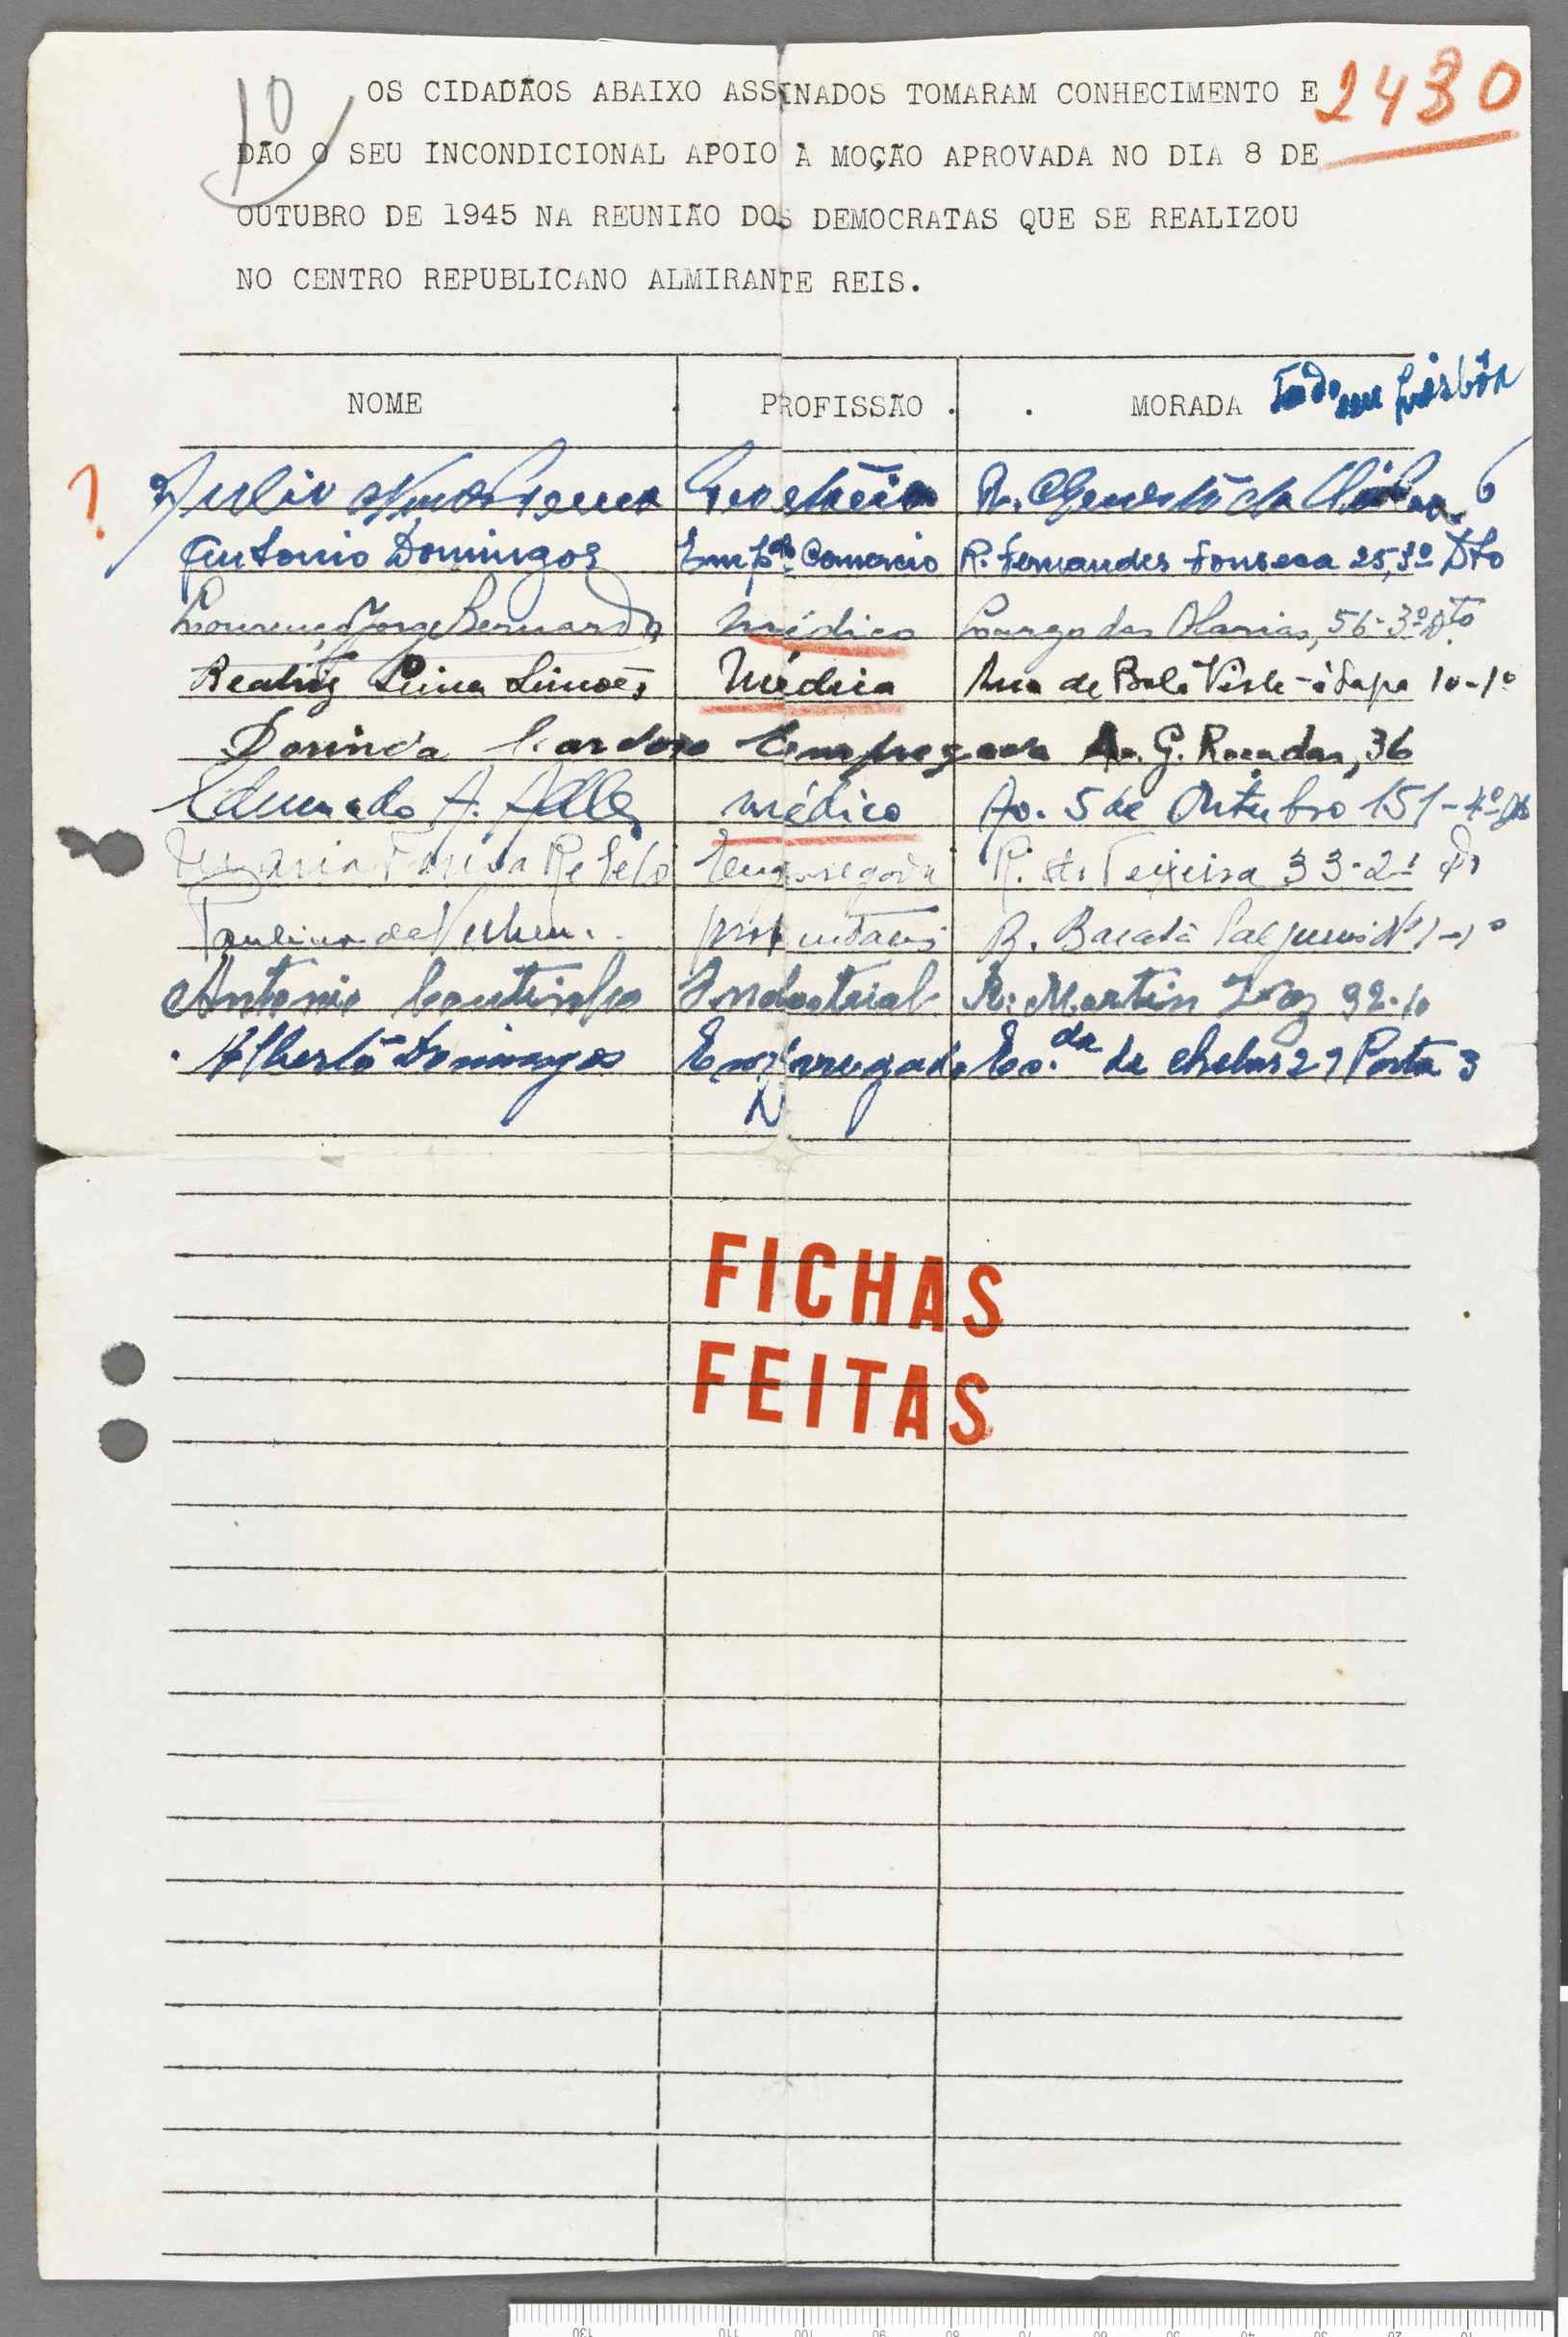 10
2430
OS CIDADÃOS ABAIXO ASSINADOS TOMARAM CONHECIMENTO E
DÃO O SEU INCONDICIONAL APOIO À MOÇÃO APROVADA NO DIA 8 DE
OUTUBRO DE 1945 NA REUNIÃO DOS DEMOCRATAS QUE SE REALIZOU
NO CENTRO REPUBLICANO ALMIRANTE REIS.
NOME PROFISSÃO . . MORADA Todo em Lisbôa
? Julio R. 6
Antonio Domingos Emp.do Comercio R. Fernandes Fonseca 25, 3º Dto
Lourenço Jorge Bernardo médico Largo das Olarias, 56-3º Dto
Beatriz Lima Simões Médica Rua de Bela Vista-à Lapa 10-1º
Dorinda Cardoso Empregada Av. G. Roçadas, 36
Eduardo A. médico Av. 5 de Outubro 151-4º
Maria Rebelo Empregada R. Teixeira 33-2º
Paulino da R. Nº 1-1º
Antonio Coutinho Industrial R. Martin Vaz 92-1º
Alberto Domingos Empregado Es.da de Chelas 27 Porta 3
FICHAS
FEITAS
130 110 100 90 80 70 60 50 40 30 20 10